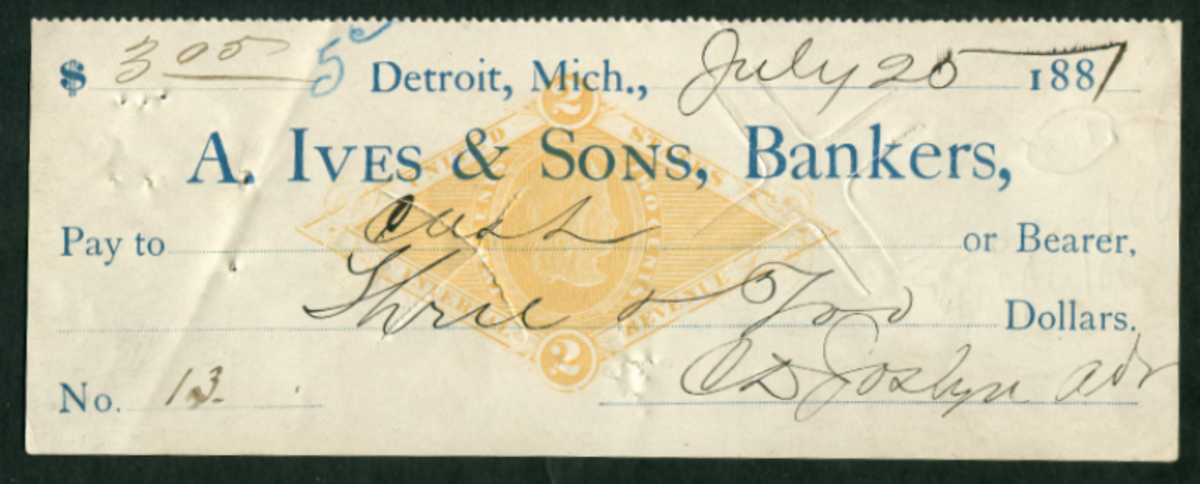 $ 3 00 5 Detroit, Mich., July 25 1881
A. IVES & SONS, Bankers,
Pay to Cash or Bearer,
Three & Dollars.
No. 13. C D Joslyn adr
2
UNITED STATES
TWO CENTS
INTERNAL REVENUE
2